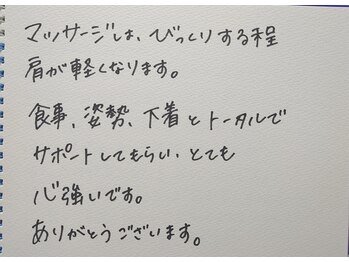 マッサージは、びっくりする程
肩が軽くなります。
食事、姿勢、下着とトータルで
サポートしてもらい、とても
心強いです。
ありがとうございます。